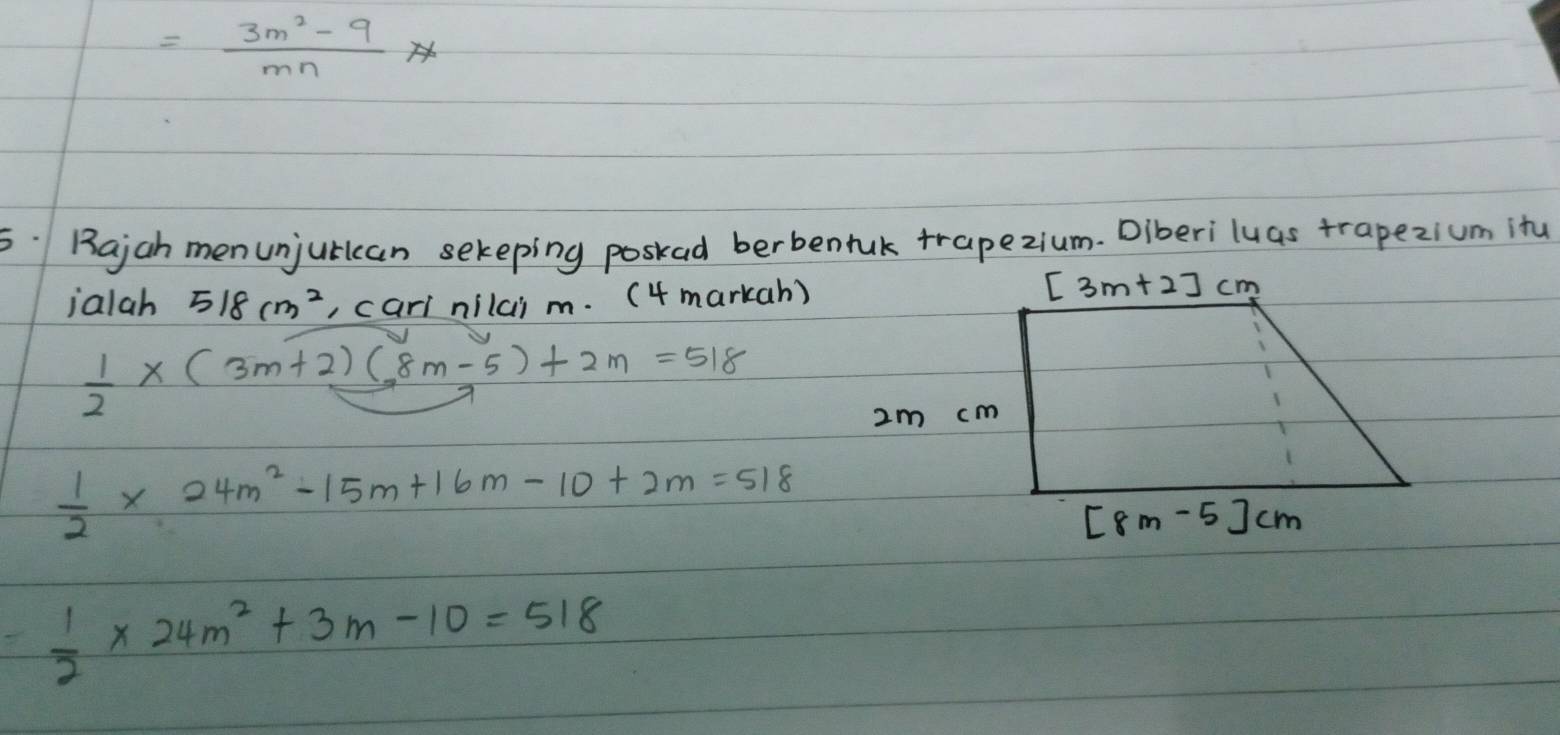 = (3m² - 9)/(mn) //
5. Rajah menunjukkan sekeping poskad berbentuk trapezium. Diberi luas trapezium itu
ialah 518 cm², cari nilai m. (4 markah)
[3m+2] cm
1/2 × (3m+2)(8m-5) + 2m = 518
2m cm
1/2 × 24m² - 15m + 16m - 10 + 2m = 518
[8m-5] cm
1/2 × 24m² + 3m - 10 = 518